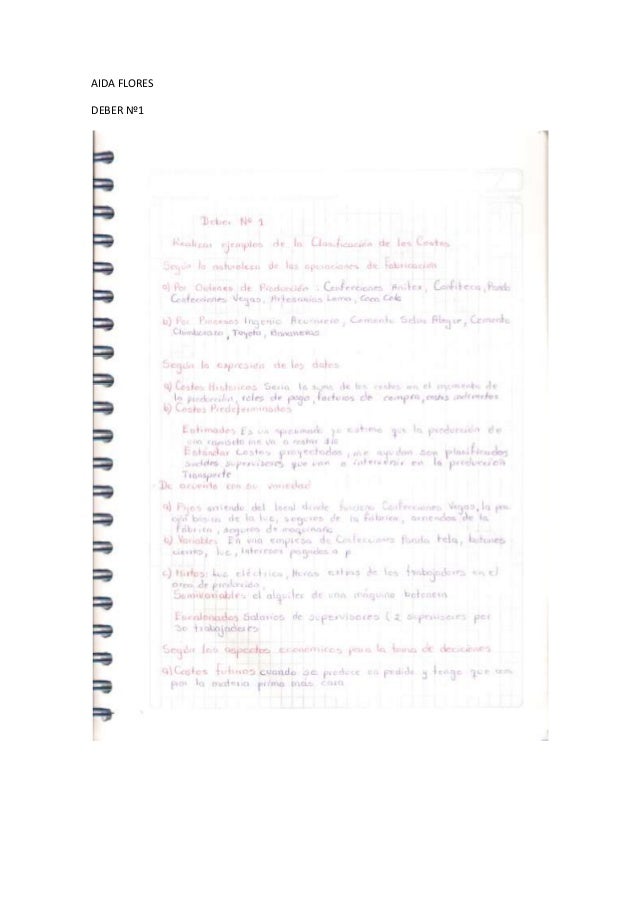 AIDA FLORES
DEBER Nº1
Deber Nº 1
Realizar ejemplos de la Clasificación de los Costos
Según la naturaleza de las operaciones de fabricación
a) Por Ordenes de Producción : Confecciones Anitex, Confiteca, Pando
Confecciones Vegas, Artesanias Lema, Coca Cola
b) Por Procesos Ingenio Azucarero, Cemento Selva Alegre, Cemento
Chimborazo, Toyota, Bananeras
Según la expresión de los datos
a) Costos Historicos Seria la suma de los costos en el momento de
la producción, roles de pago, facturas de compra, costos indirectos
b) Costos Predeterminados
Estimados Es un aproximado yo estimo que la producción de
una camiseta me va a costar
Estándar Costos proyectados, me ayudan son planificados
sueldos supervisores que van a intervenir en la producción
Transporte
De acuerdo con su variedad
a) Fijos arriendo del local donde funciona Confecciones Vegas, la
básica de la luz, seguros de la fábrica, arriendos de la
fábrica, seguros de maquinaria
b) Variables En una empresa de Confecciones Panda tela, botones
cierres, luz, intereses pagados a p.
c) Mixtos: luz eléctrica, Horas extras de los trabajadores en el
area de producción,
Semivariables el alquiler de una máquina botonera
Escalonados Salarios de supervisores (2 supervisores por
30 trabajadores
Según los aspectos económicos para la toma de decisiones
a) Costos futuros cuando se produce un pedido y tengo que
por la materia prima más cara